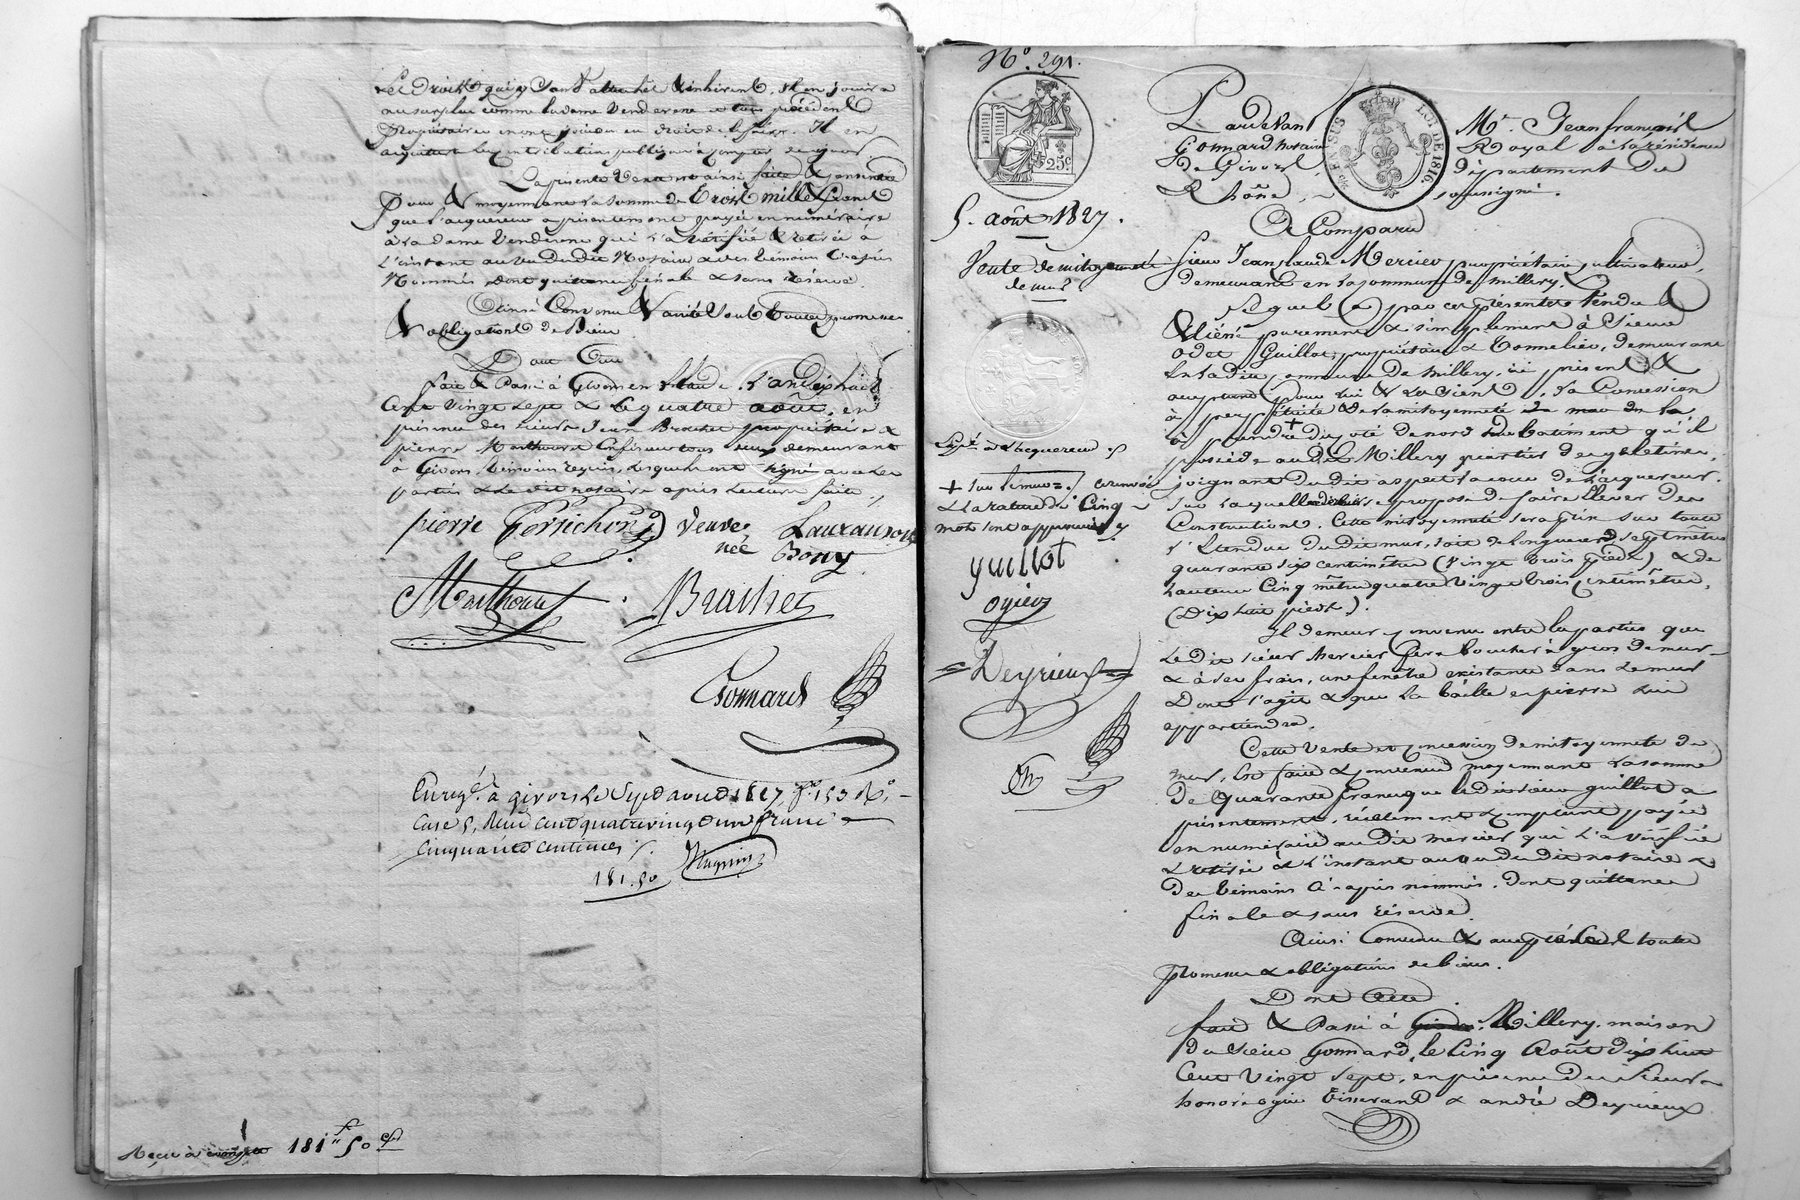 & les droits qui y sont attachés & inhérents, il en jouira
au surplus comme la dame venderesse & tous précédents
propriétaires en ont joui ou eu droit de le faire. Il en
acquittera les contributions publiques à compter de ce jour
La présente vente est ainsi faite & consentie
pour & moyennant la somme de Trois mille francs
que l'acquéreur a présentement payée en numéraire
à la dame venderesse qui l'a vérifiée & retirée à
l'instant au vu du dit Notaire & des témoins ci-après
nommés dont quittance finale & sans réserve.
Ainsi Convenu & arrêté sous toutes promesses
& obligations de Biens
Dont Acte
fait & Passé à Givors en l'étude l'an dix huit
cent vingt sept & le quatre août, en
présence des sieurs Jean Brachet propriétaire &
pierre Marthoure tous deux demeurant
à Givors, témoins requis, lesquels ont signé avec les
parties & le dit notaire après lecture faite ./.
pierre Perrichon veuve Lauzanson
née Bony
Marthoure Brachet
Gonnard
Enregé. à givors le sept aout 1827, fo. 153 Ro.
case 5, Reçu cent quatre vingt un franc
cinquante centimes ./.
181.50
Reçu à 181 f 50 c
No. 291.
25c.
5. août 1827.
Vente de mitoyenneté
de mur
Expé. à l'acquéreur
+ sur le mur = renvoi
& la rature de Cinq
mots sont approuvés
guillot
ogier
Deyrieux
Gn
Pardevant Mr. Jean françois
Gonnard notaire Royal à la résidence
de Givors département du
Rhône, soussigné.
EN SUS
LOI DE 1816
A Comparu
Sieur Jean Claude Mercier propriétaire cultivateur,
demeurant en la commune de Millery.
Lequel a par ces présentes Vendu &
Aliéné purement & simplement à Sieur
odet Guillot, propriétaire & Tonnelier, demeurant
en la dite commune de Millery, ici présent &
acceptant pour lui & les siens, la Concession
à perpétuité de la mitoyenneté de mur de la
à prendre + du côté de nord du batiment qu'il
possède au dit Millery quartier des
joignant du dit aspect la cour de l'acquéreur.
sur laquelle ce dernier se propose de faire élever des
Constructions. Cette mitoyenneté sera prise sur toute
l'étendue du dit mur, soit de longueur sept mètres
quarante six centimètres (vingt trois pieds) & de
hauteur Cinq mètres quatre vingt trois centimètres,
(Dix huit pieds).
Il demeure convenu entre les parties que
le dit sieur Mercier fera boucher à gros de mur
& à ses frais, une fenêtre existante dans le mur
dont s'agit & que la taille en pierre lui
appartiendra.
Cette Vente et concession de mitoyenneté de
mur, est faite & convenue moyennant la somme
de Quarante francs que le dit sieur guillot a
présentement, réellement & comptant payée
en numéraire au dit mercier qui l'a vérifiée
& retirée à l'instant au vu du dit notaire &
des témoins ci-après nommés. dont quittance
finale & sans réserve.
Ainsi Convenu & accepté sous toutes
promesses & obligations de biens.
Dont Acte
fait & Passé à Millery, maison
du sieur Gonnard, le Cinq Août dix huit
Cent Vingt Sept, en présence des Sieurs
honoré ogier Tisserand & andré Deyrieux